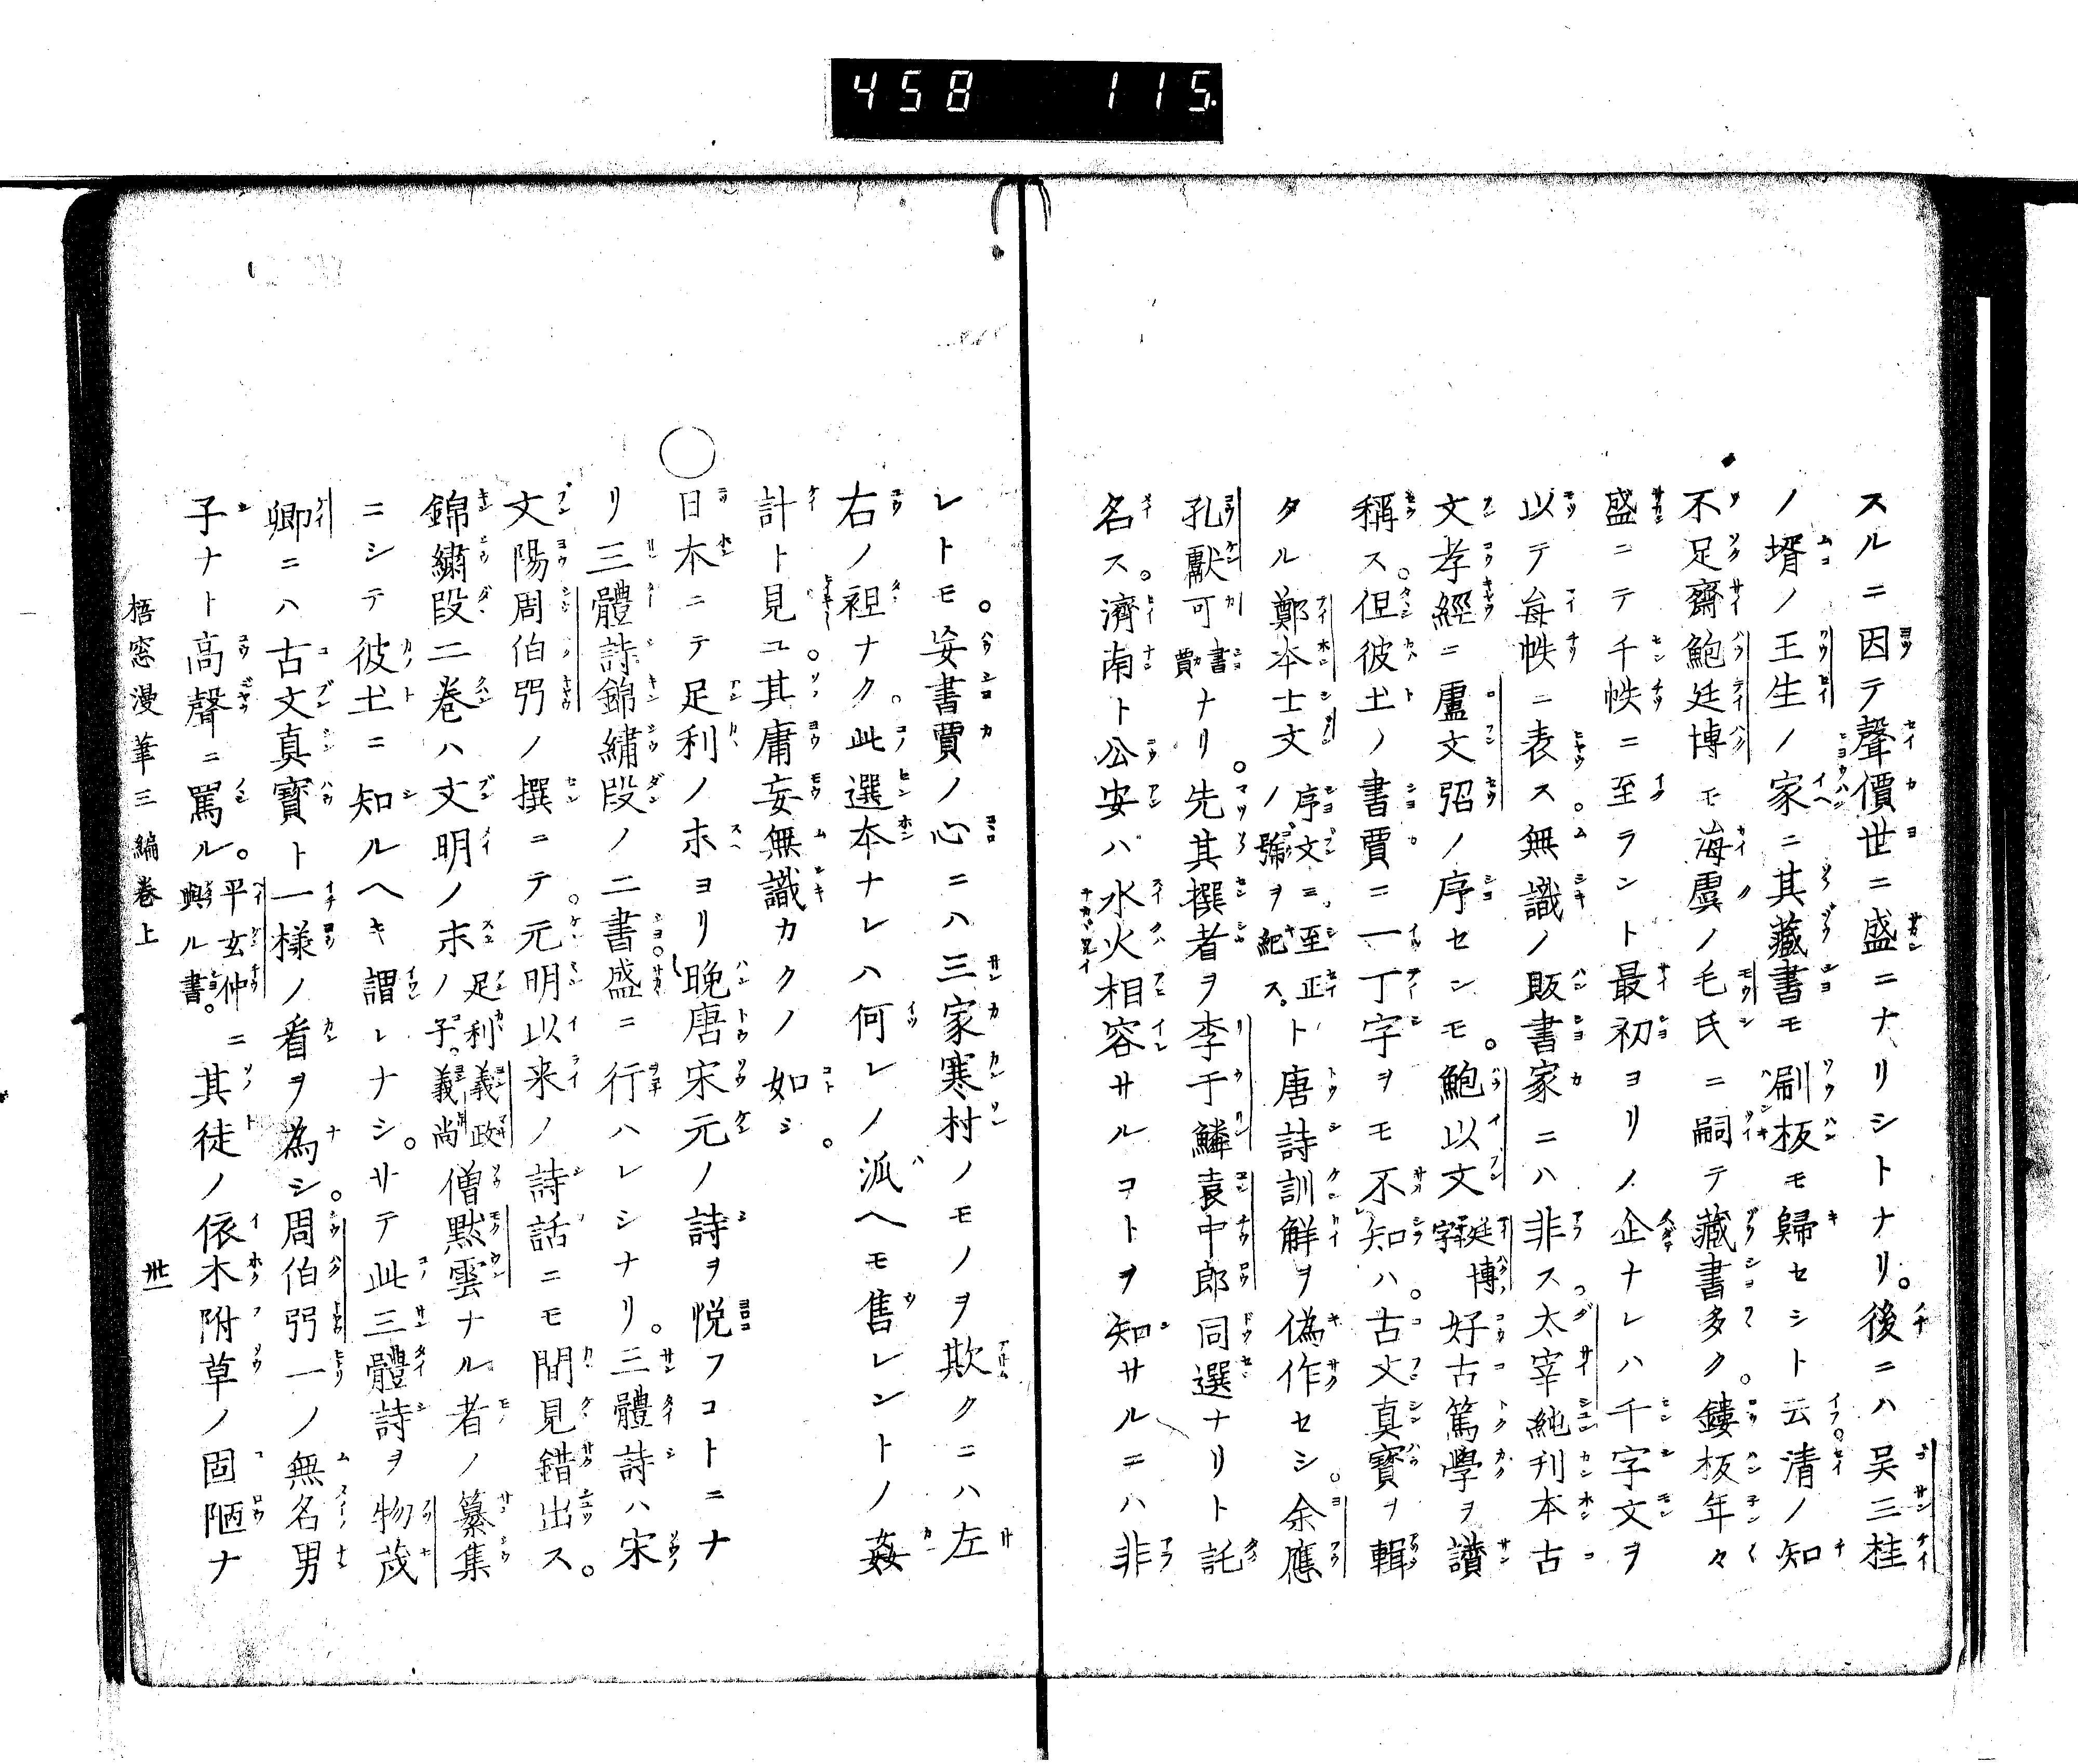 458 115
スルニ因テ聲價世ニ盛ニナリシトナリ。後ニハ吴三桂
ノ壻ノ王生ノ家ニ其藏書モ刷板モ歸セシト云清ノ知
不足齋鮑廷博モ海虞ノ毛氏ニ嗣テ藏書多ク。鏤板年々
盛ニテ千帙ニ至ラント最初ヨリノ企ナレハ千字文ヲ
以テ每帙ニ表ス。無識ノ販書家ニハ非ス。太宰純刊本古
文孝經ニ盧文弨ノ序セシモ。鮑以文廷博字好古篤學ヲ讚
稱ス。但彼土ノ書賈ニ一丁字ヲモ不知ハ。古文真寶ヲ輯
タル鄭本士文ノ序文ニ至正號ヲ紀ス。ト唐詩訓解ヲ偽作セシ。余應
孔獻可書賈ナリ。先其撰者ヲ李于鱗袁中郎同選ナリト託
名ス。濟南ト公安バ水火相容サルコトヲ知サルニハ非
レトモ。妄書賈ノ心ニハ三家寒村ノモノヲ欺クニハ左
右ノ袒ナク。此選本ナレハ何レノ派ヘモ售レントノ姦
計ト見ユ。其庸妄無識カクノ如シ。
○日本ニテ足利ノ末ヨリ晚唐宋元ノ詩ヲ悦フコトニナ
リ三體詩錦繡段ノ二書盛ニ行ハレシナリ。三體詩ハ宋
文陽周伯弜ノ撰ニテ。元明以来ノ詩話ニモ間見錯出ス。
錦繡段二卷ハ文明ノ末ノ足利義政子。義尚僧黙雲ナル者ノ纂集
ニシテ彼土ニ知ルヘキ謂レナシ。サテ此三體詩ヲ物茂
卿ニハ古文真寶ト一樣ノ看ヲ為シ。周伯弜一ノ無名男
子ナト高聲ニ罵ル。平玄仲與ル書。ニ其徒ノ依木附草ノ固陋ナ
梧窓漫筆三編卷上
卅一